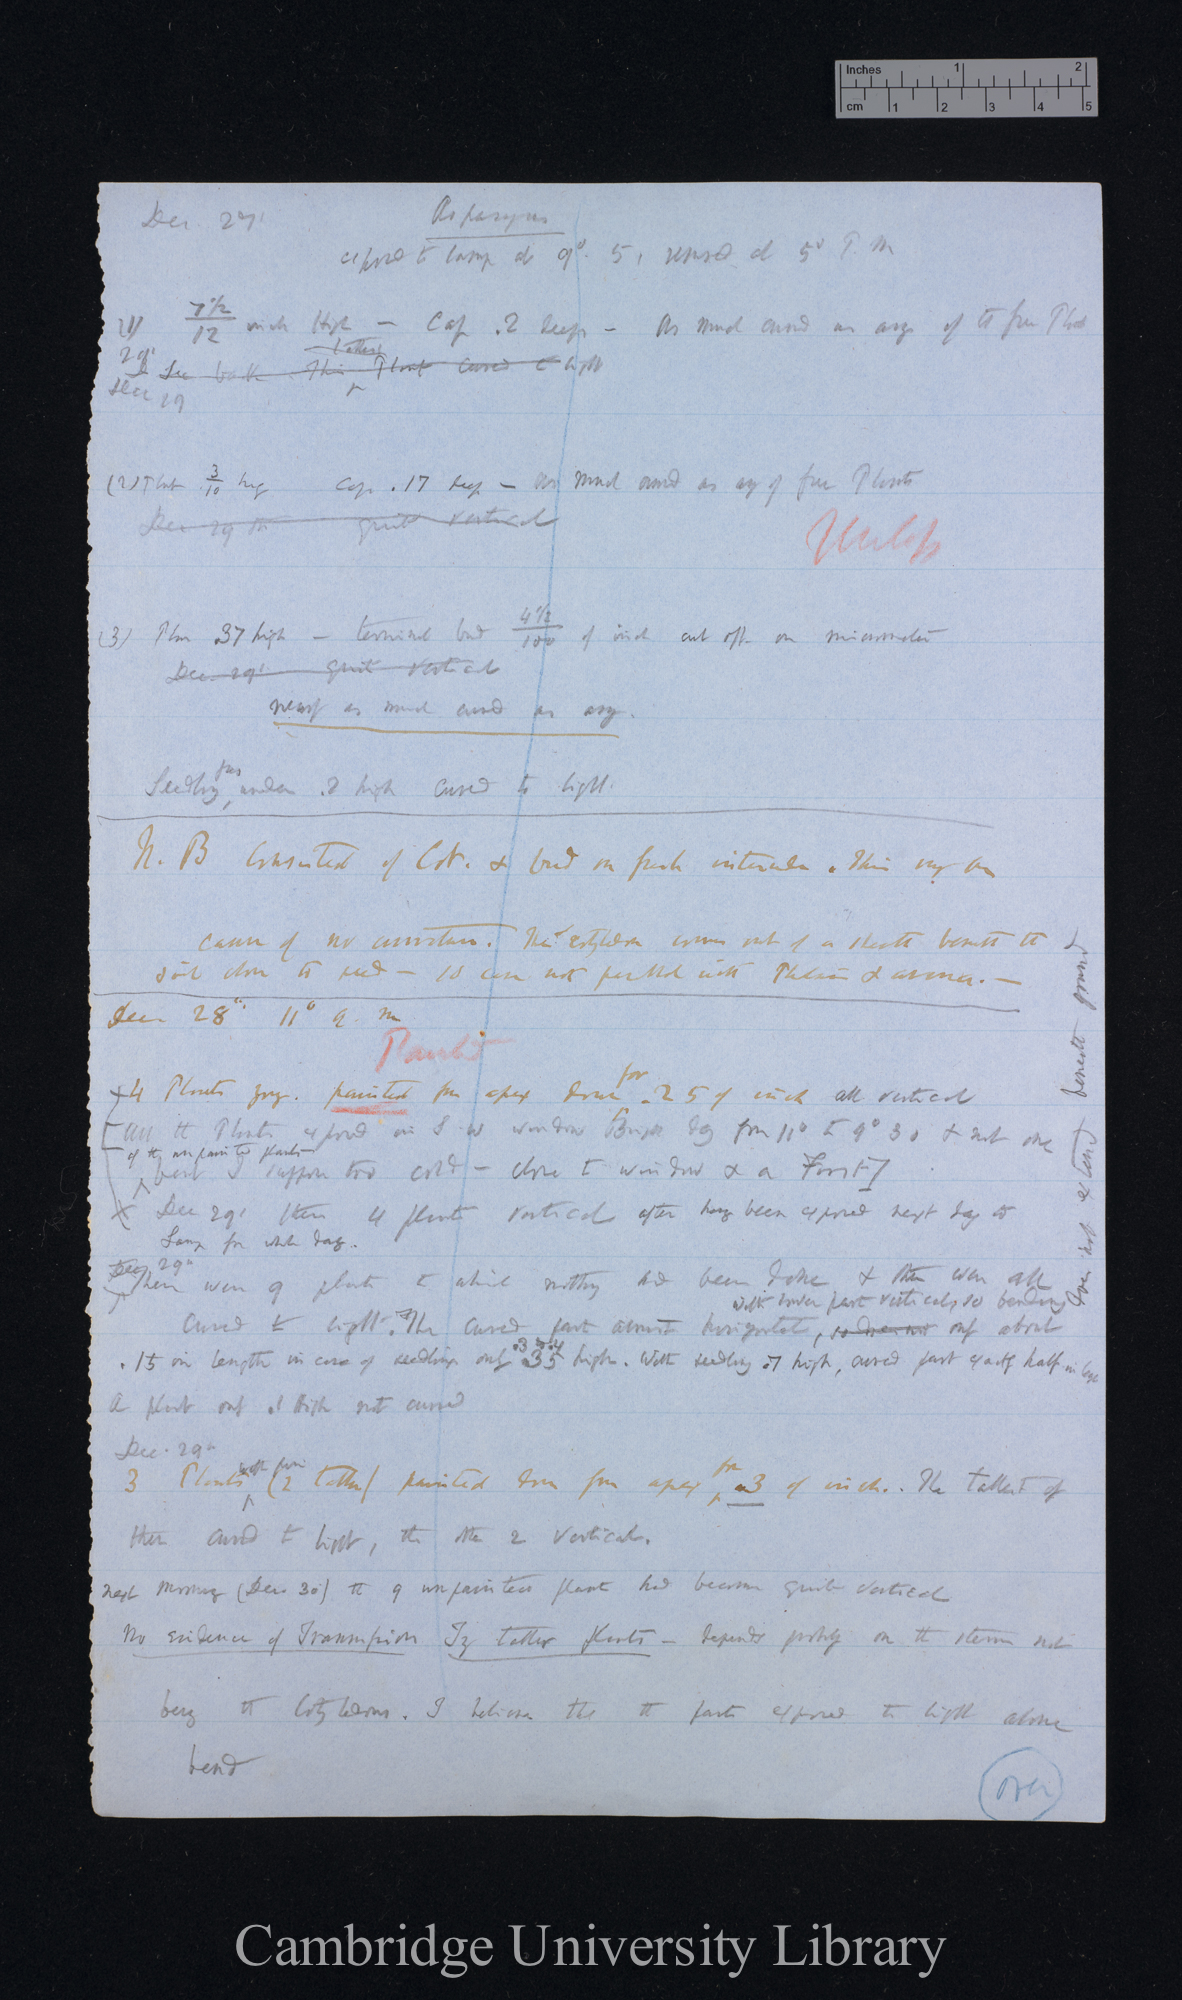 Inches 1 2
cm 1 2 3 4 5
Dec. 27'
Asparagus
exposed to lamp at 9°. 5, removed at 5° P. M
(1) 7½/12 inch high — Cap .2 deep — As much curved as any of the free Plant
29'
Dec 29
See both This Plant curved to light
(2) Plant 3/10 high Cap .17 deep — as much curved as any of free Plants
Dec 29 th quite vertical
(3) Plant .37 high — terminal bud 4½/100 of inch cut off on micrometer
Dec. 29' quite vertical
nearly as much curved as any.
Seedling under .2 high curved to light.
N. B Consisted of Cot. & bud on fresh internode. This may be
cause of no curvature. The cotyledon comes out of a sheath beneath the
soil close to seed — so case not parallel with Phalaris & avena. —
Dec 28" 11° a. m
Painted
4 Plants young. painted from apex down for .25 of inch all vertical
[All the Plants exposed in S W window Bright day from 11° to 9° 30 & not one
of the unpainted plants
bent I suppose too cold — close to window & a Frost]
X Dec 29' these 4 plants vertical after having been exposed next day to
Lamp for whole day.
Dec. 29"
There were 9 plants to which nothing had been done & these were all
with lower part vertical, so bending
does not extend beneath ground
curved to light. The curved part almost horizontal, only about
.15 in length in case of seedlings only .35 high. With seedling .7 high, curved part exactly half in
A plant only .1 high not curved
Dec. 29"
3 Plants (2 taller) painted down from apex for .3 of inch. The tallest of
these curved to light, the other 2 vertical.
next morning (Dec. 30) the 9 unpainted plants had become quite vertical
No evidence of Transmission In taller plants — depends probably on the stems not
being the cotyledons. I believe that the parts exposed to light alone
bend
over
Cambridge University Library